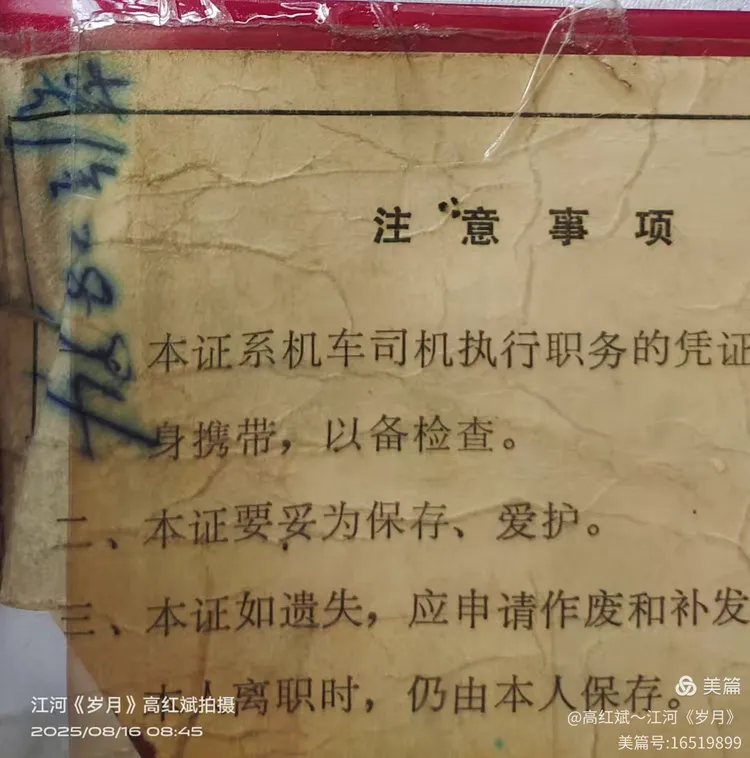 注意事项
本证系机车司机执行职务的凭证
身携带，以备检查。
二、本证要妥为保存、爱护。
三、本证如遗失，应申请作废和补发
本人离职时，仍由本人保存。
江河《岁月》高红斌拍摄
2025/08/16 08:45
美篇
@高红斌～江河《岁月》
美篇号:16519899